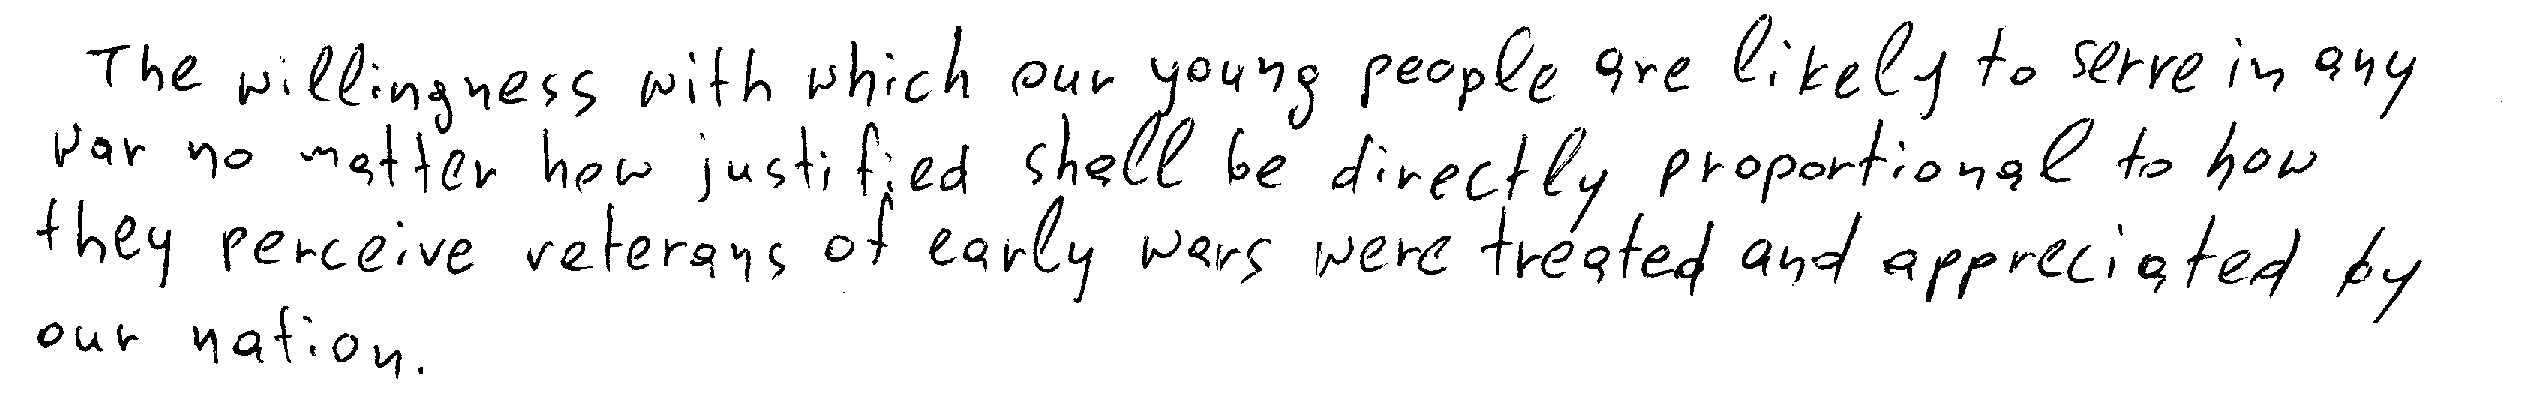 The willingness with which our young people are likely to serve in any
war no matter how justified shall be directly proportional to how
they perceive veterans of early wars were treated and appreciated by
our nation.